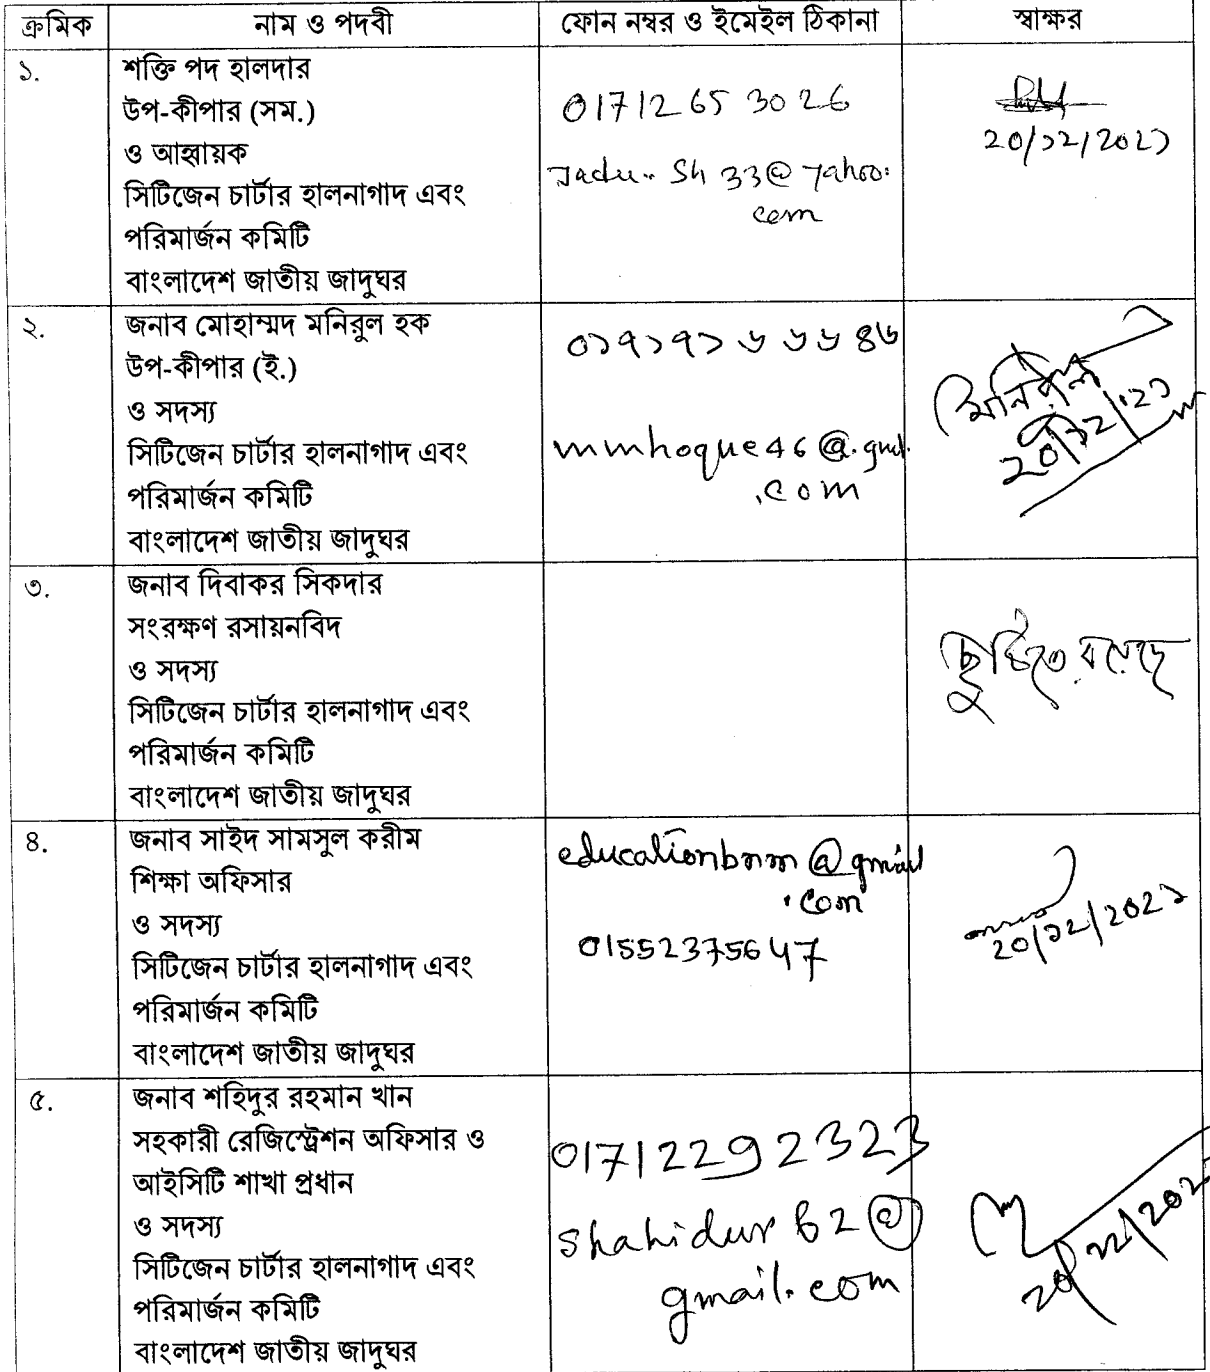 ক্রমিক নাম ও পদবী ফোন নম্বর ও ইমেইল ঠিকানা স্বাক্ষর
১.
শক্তি পদ হালদার
উপ-কীপার (সম.)
ও আহ্বায়ক
সিটিজেন চার্টার হালনাগাদ এবং
পরিমার্জন কমিটি
বাংলাদেশ জাতীয় জাদুঘর
01712653026
Sh33@yahoo.
com
20/12/2021
২.
জনাব মোহাম্মদ মনিরুল হক
উপ-কীপার (ই.)
ও সদস্য
সিটিজেন চার্টার হালনাগাদ এবং
পরিমার্জন কমিটি
বাংলাদেশ জাতীয় জাদুঘর
০১৭১৭১৬৬৬৪৬
mmhoque46@
.com
মনিরুল
20/12/'21
৩.
জনাব দিবাকর সিকদার
সংরক্ষণ রসায়নবিদ
ও সদস্য
সিটিজেন চার্টার হালনাগাদ এবং
পরিমার্জন কমিটি
বাংলাদেশ জাতীয় জাদুঘর
ছুটিতে রয়েছে
৪.
জনাব সাইদ সামসুল করীম
শিক্ষা অফিসার
ও সদস্য
সিটিজেন চার্টার হালনাগাদ এবং
পরিমার্জন কমিটি
বাংলাদেশ জাতীয় জাদুঘর
educationbnm@gmail
.com
01552375647
20/12/2021
৫.
জনাব শহিদুর রহমান খান
সহকারী রেজিস্ট্রেশন অফিসার ও
আইসিটি শাখা প্রধান
ও সদস্য
সিটিজেন চার্টার হালনাগাদ এবং
পরিমার্জন কমিটি
বাংলাদেশ জাতীয় জাদুঘর
01712292323
shahidur62@
gmail.com
20/12/202